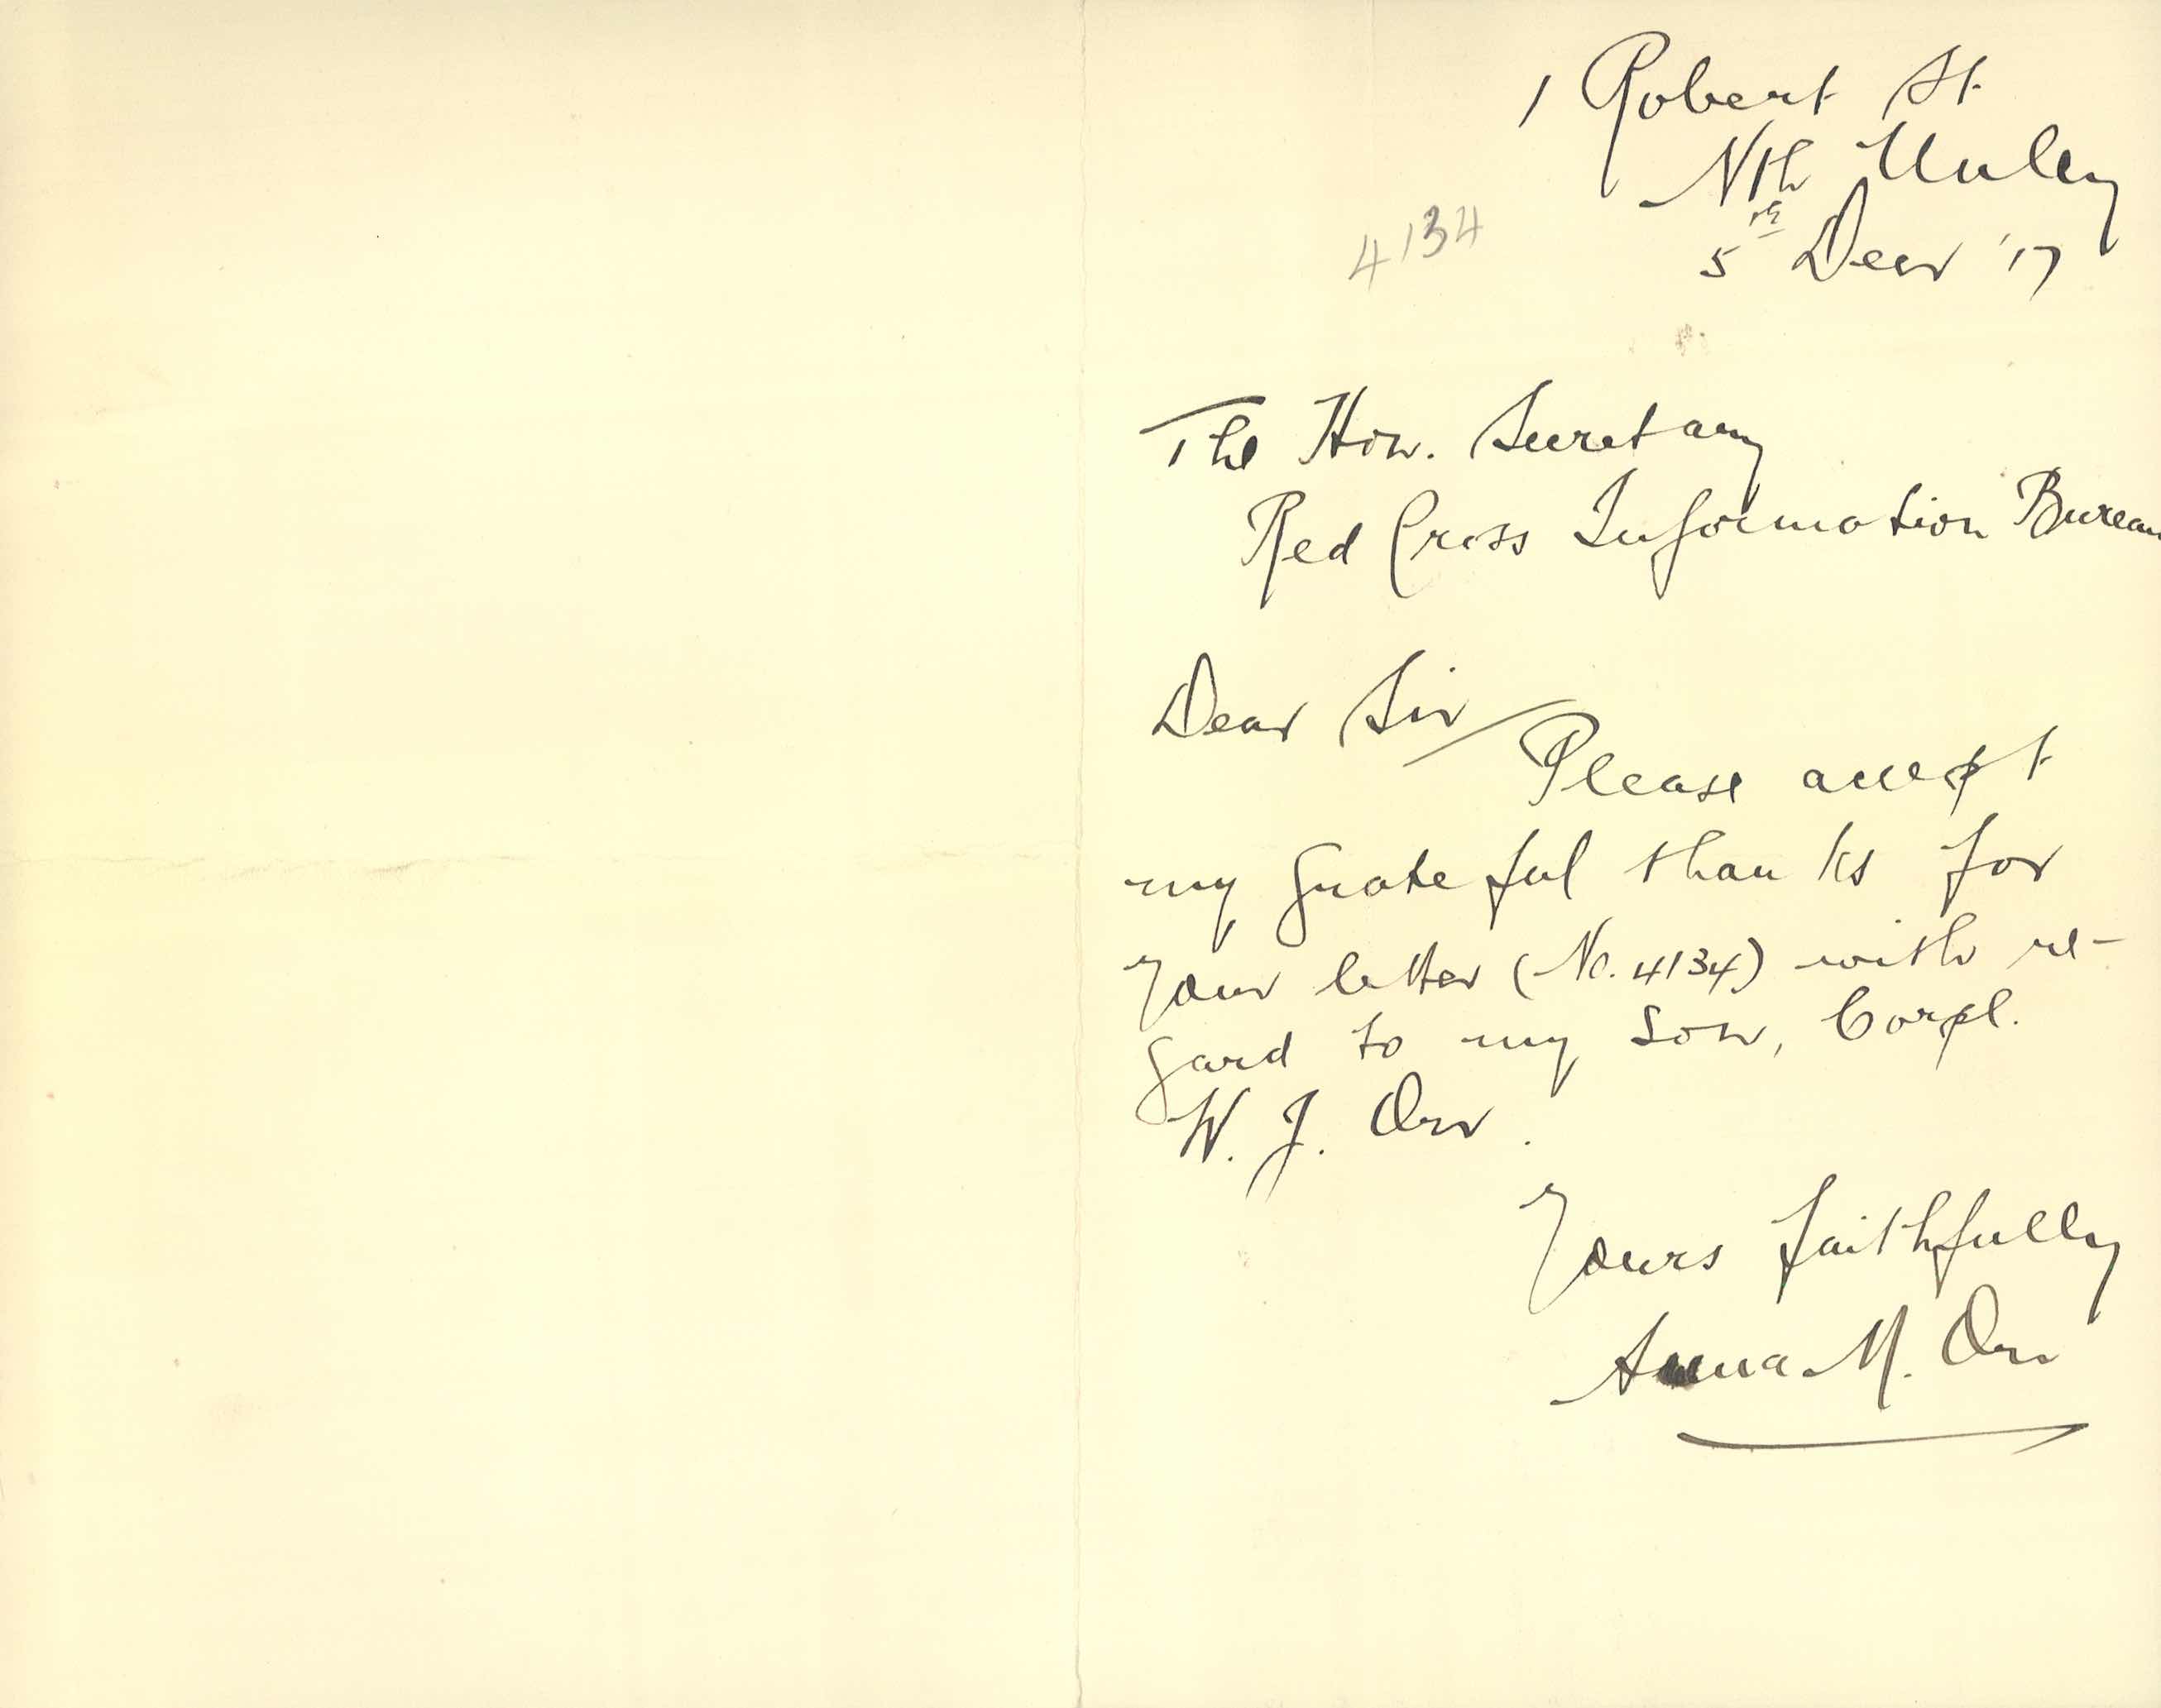 1 Robert St
Nth Unley
4134
5th Decr '17
The Hon. Secretary
Red Cross Information Bureau
Dear Sir
Please accept
my grateful thanks for
your letter (No. 4134) with re-
gard to my son, Corpl.
W. J. Orr.
Yours faithfully
Anna M. Orr